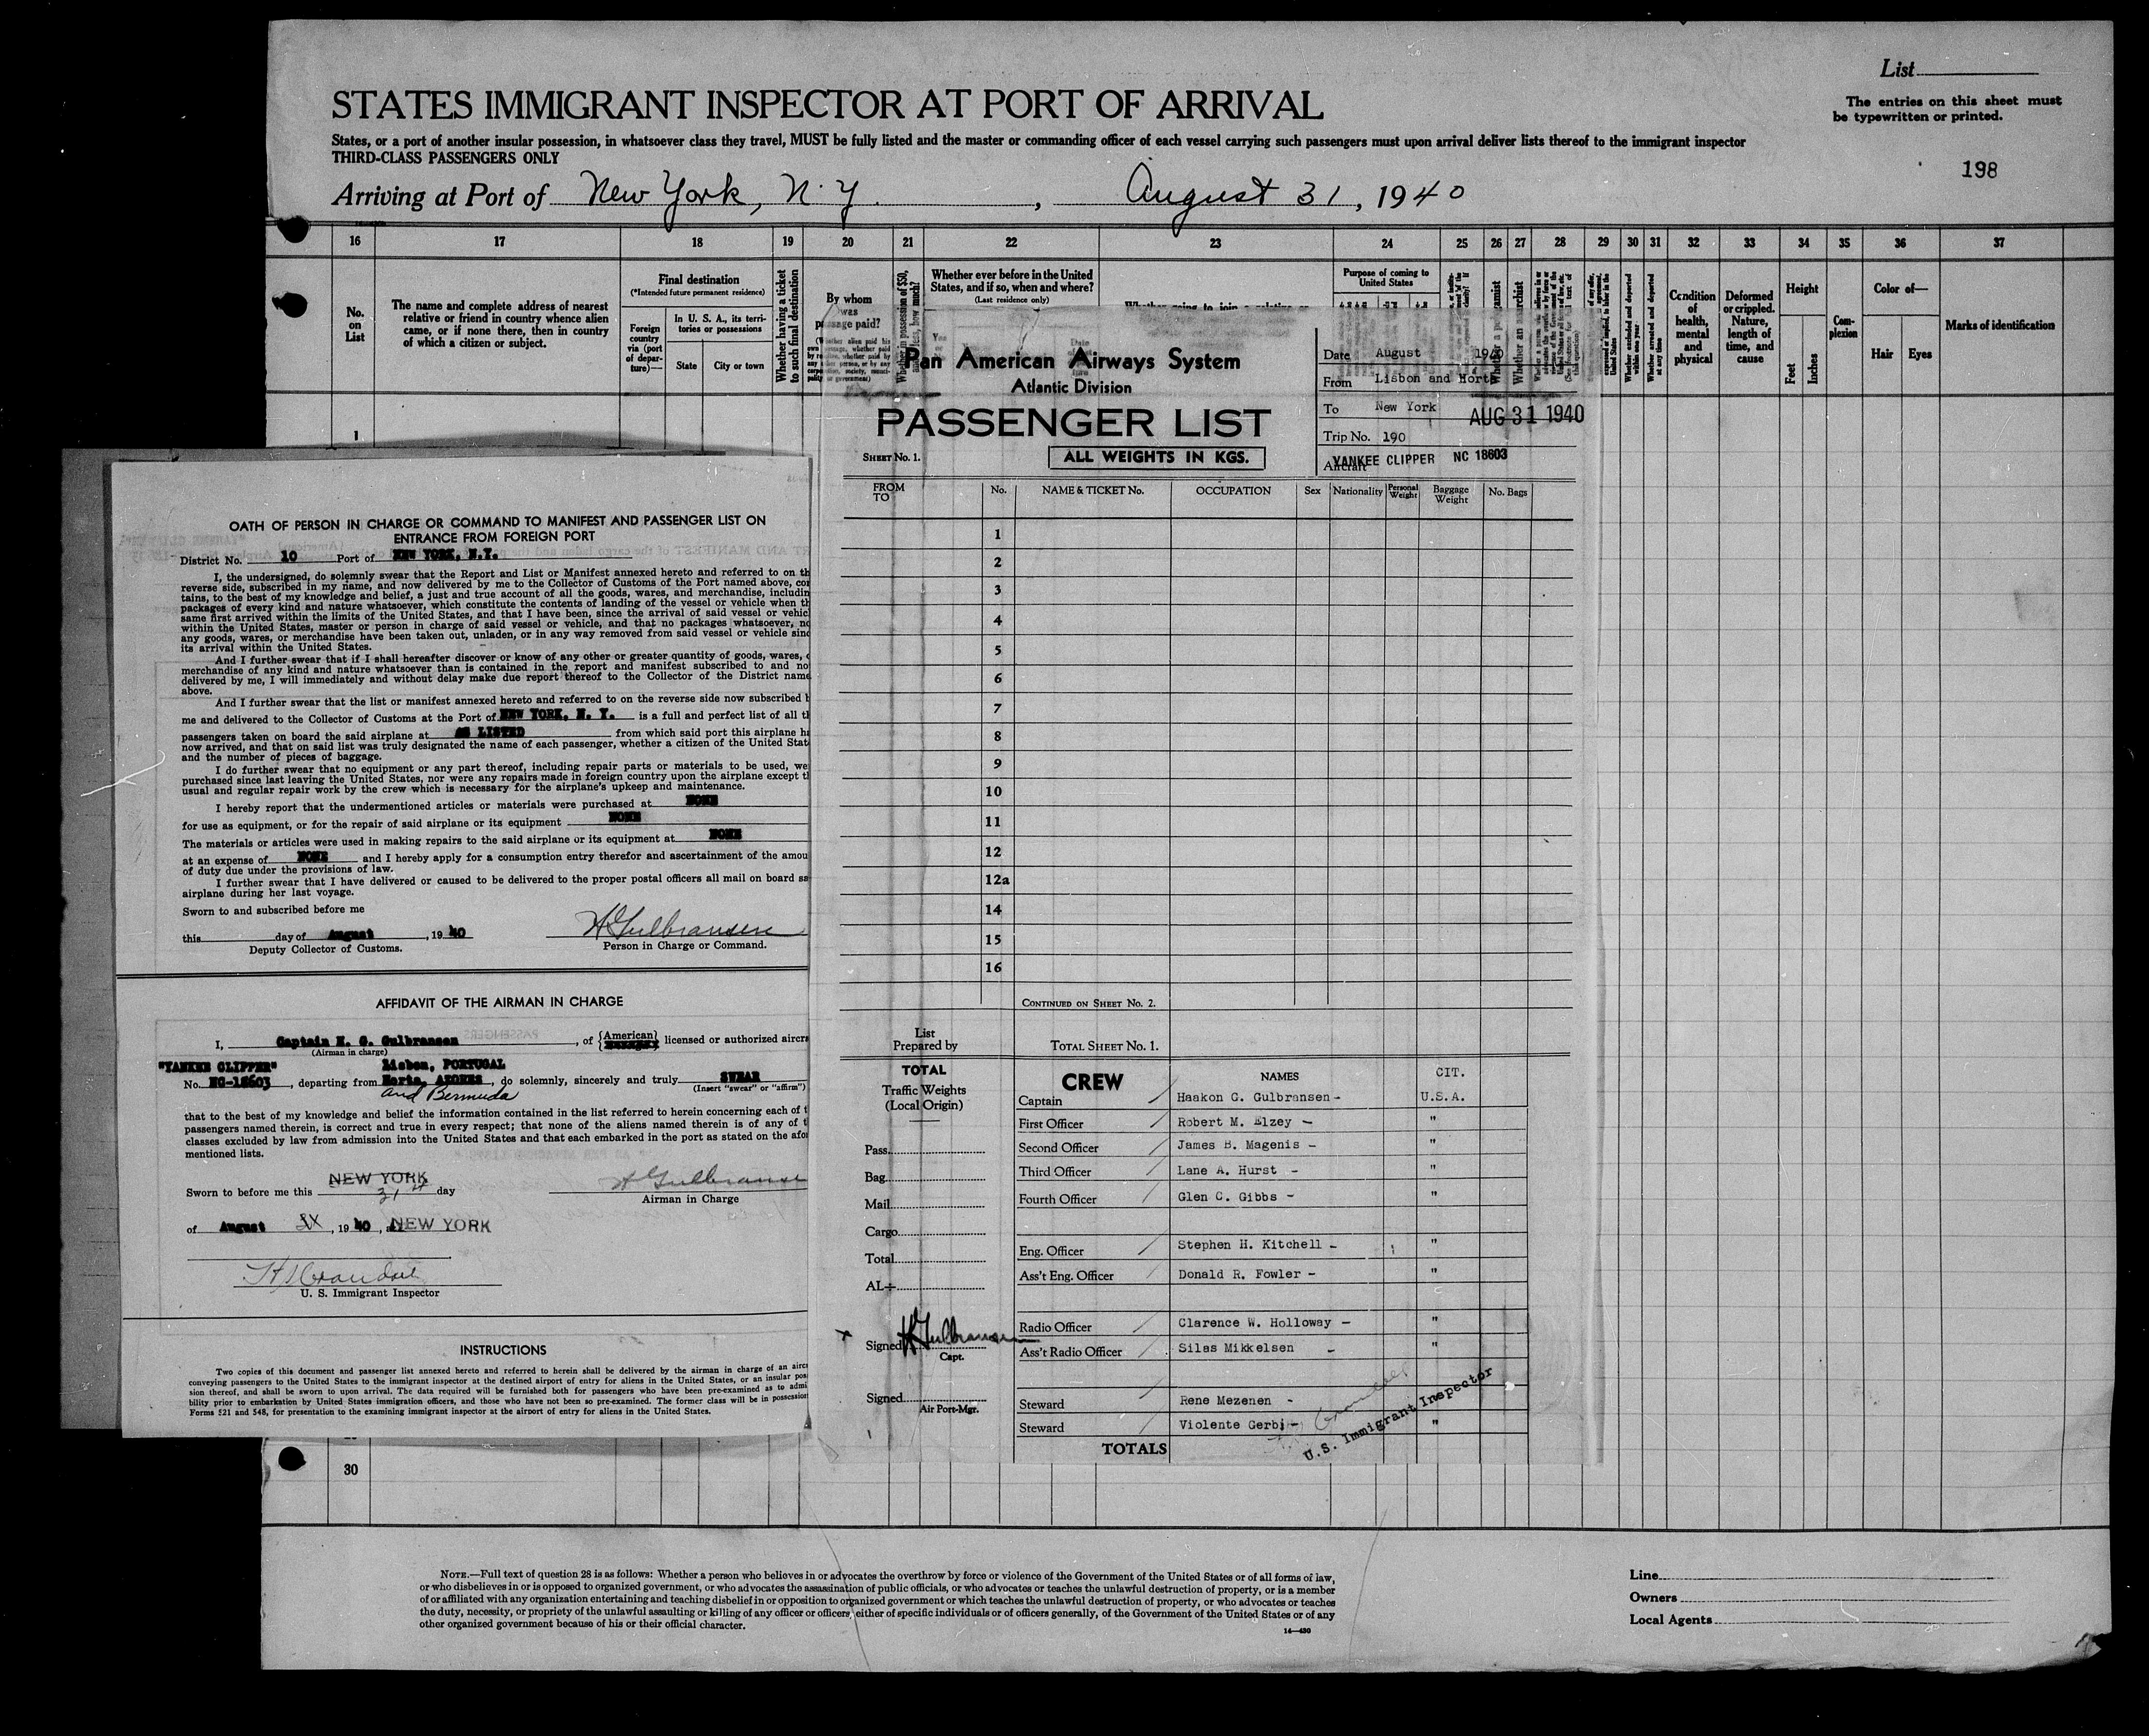 List
STATES IMMIGRANT INSPECTOR AT PORT OF ARRIVAL
The entries on this sheet must
be typewritten or printed.
States, or a port of another insular possession, in whatsoever class they travel, MUST be fully listed and the master or commanding officer of each vessel carrying such passengers must upon arrival deliver lists thereof to the immigrant inspector
THIRD-CLASS PASSENGERS ONLY
198
Arriving at Port of New York, N.Y., August 31, 1940
16 17 18 19 20 21 22 23 24 25 26 27 28 29 30 31 32 33 34 35 36 37
No.
on
List
The name and complete address of nearest
relative or friend in country whence alien
came, or if none there, then in country
of which a citizen or subject.
Final destination
(*Intended future permanent residence)
Foreign
country
via (port
of depar-
ture)—
In U. S. A., its terri-
tories or possessions
State City or town
Whether having a ticket
to such final destination
By whom
was
passage paid?
Whether ever before in the United
States, and if so, when and where?
(Last residence only)
Purpose of coming to
United States
Whether an anarchist
Condition
of
health,
mental
and
physical
Deformed
or crippled.
Nature,
length of
time, and
cause
Height
Feet Inches
Com-
plexion
Color of—
Hair Eyes
Marks of identification
1
Pan American Airways System
Atlantic Division
PASSENGER LIST
SHEET No. 1.
ALL WEIGHTS IN KGS.
Date August 1940
From Lisbon and Horta
To New York
AUG 31 1940
Trip No. 190
Aircraft YANKEE CLIPPER NC 18603
FROM
TO
No. NAME & TICKET No. OCCUPATION Sex Nationality Personal Weight Baggage Weight No. Bags
1
2
3
4
5
6
7
8
9
10
11
12
12a
14
15
16
CONTINUED ON SHEET No. 2.
List
Prepared by
TOTAL SHEET No. 1.
TOTAL
Traffic Weights
(Local Origin)
Pass.
Bag.
Mail
Cargo
Total
AL+
Signed H Gulbransen
Capt.
Signed
Air Port-Mgr.
CREW NAMES CIT.
Captain Haakon G. Gulbransen - U.S.A.
First Officer Robert M. Elzey - "
Second Officer James B. Magenis - "
Third Officer Lane A. Hurst - "
Fourth Officer Glen C. Gibbs - "
Eng. Officer Stephen H. Kitchell - "
Ass't Eng. Officer Donald R. Fowler - "
Radio Officer Clarence W. Holloway - "
Ass't Radio Officer Silas Mikkelsen - "
Steward Rene Mezenen - "
Steward Violente Gerbi - "
U.S. Immigrant Inspector
TOTALS
OATH OF PERSON IN CHARGE OR COMMAND TO MANIFEST AND PASSENGER LIST ON
ENTRANCE FROM FOREIGN PORT
District No. 10 Port of NEW YORK, N.Y.
I, the undersigned, do solemnly swear that the Report and List or Manifest annexed hereto and referred to on th
reverse side, subscribed in my name, and now delivered by me to the Collector of Customs of the Port named above, con
tains, to the best of my knowledge and belief, a just and true account of all the goods, wares, and merchandise, includin
packages of every kind and nature whatsoever, which constitute the contents of landing of the vessel or vehicle when th
same first arrived within the limits of the United States, and that I have been, since the arrival of said vessel or vehic
within the United States, master or person in charge of said vessel or vehicle, and that no packages whatsoever, no
any goods, wares, or merchandise have been taken out, unladen, or in any way removed from said vessel or vehicle sinc
its arrival within the United States.
And I further swear that if I shall hereafter discover or know of any other or greater quantity of goods, wares, o
merchandise of any kind and nature whatsoever than is contained in the report and manifest subscribed to and no
delivered by me, I will immediately and without delay make due report thereof to the Collector of the District name
above.
And I further swear that the list or manifest annexed hereto and referred to on the reverse side now subscribed b
me and delivered to the Collector of Customs at the Port of NEW YORK, N. Y. is a full and perfect list of all th
passengers taken on board the said airplane at AS LISTED from which said port this airplane ha
now arrived, and that on said list was truly designated the name of each passenger, whether a citizen of the United Stat
and the number of pieces of baggage.
I do further swear that no equipment or any part thereof, including repair parts or materials to be used, we
purchased since last leaving the United States, nor were any repairs made in foreign country upon the airplane except th
usual and regular repair work by the crew which is necessary for the airplane's upkeep and maintenance.
I hereby report that the undermentioned articles or materials were purchased at NONE
for use as equipment, or for the repair of said airplane or its equipment NONE
The materials or articles were used in making repairs to the said airplane or its equipment at NONE
at an expense of NONE and I hereby apply for a consumption entry therefor and ascertainment of the amou
of duty due under the provisions of law.
I further swear that I have delivered or caused to be delivered to the proper postal officers all mail on board sa
airplane during her last voyage.
Sworn to and subscribed before me
this day of August, 19 40
Deputy Collector of Customs.
H Gulbransen
Person in Charge or Command.
AFFIDAVIT OF THE AIRMAN IN CHARGE
I, Captain H. G. Gulbransen, of {American} licensed or authorized aircra
(Airman in charge)
"YANKEE CLIPPER" Lisbon, PORTUGAL
No. NC-18603, departing from Horta, AZORES, do solemnly, sincerely and truly SWEAR
and Bermuda
(Insert "swear" or "affirm")
that to the best of my knowledge and belief the information contained in the list referred to herein concerning each of t
passengers named therein, is correct and true in every respect; that none of the aliens named therein is of any of t
classes excluded by law from admission into the United States and that each embarked in the port as stated on the afor
mentioned lists.
NEW YORK
Sworn to before me this 31st day
of August, 19 40, at NEW YORK
H Gulbransen
Airman in Charge
U. S. Immigrant Inspector
INSTRUCTIONS
Two copies of this document and passenger list annexed hereto and referred to herein shall be delivered by the airman in charge of an airc
conveying passengers to the United States to the immigrant inspector at the destined airport of entry for aliens in the United States, or an insular pos
sion thereof, and shall be sworn to upon arrival. The data required will be furnished both for passengers who have been pre-examined as to admi
bility prior to embarkation by United States immigration officers, and those who have not been so pre-examined. The former class will be in possession
Forms 521 and 548, for presentation to the examining immigrant inspector at the airport of entry for aliens in the United States.
30
NOTE.—Full text of question 28 is as follows: Whether a person who believes in or advocates the overthrow by force or violence of the Government of the United States or of all forms of law,
or who disbelieves in or is opposed to organized government, or who advocates the assassination of public officials, or who advocates or teaches the unlawful destruction of property, or is a member
of or affiliated with any organization entertaining and teaching disbelief in or opposition to organized government or which teaches the unlawful destruction of property, or who advocates or teaches
the duty, necessity, or propriety of the unlawful assaulting or killing of any officer or officers, either of specific individuals or of officers generally, of the Government of the United States or of any
other organized government because of his or their official character.
14—430
Line
Owners
Local Agents